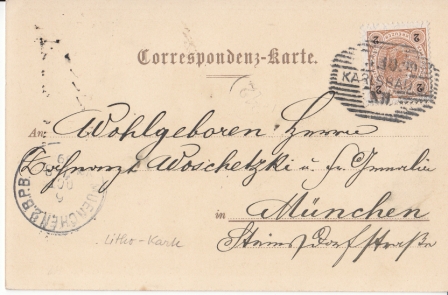 Correspondenz-Karte.
2 2
KARLSBAD
2
An Wohlgeboren Herrn
Woschetzki u. Fr. Gemalin
in München
Steinsdorfstraße
MUENCHEN 2.B.P.B.
Litho-Karte